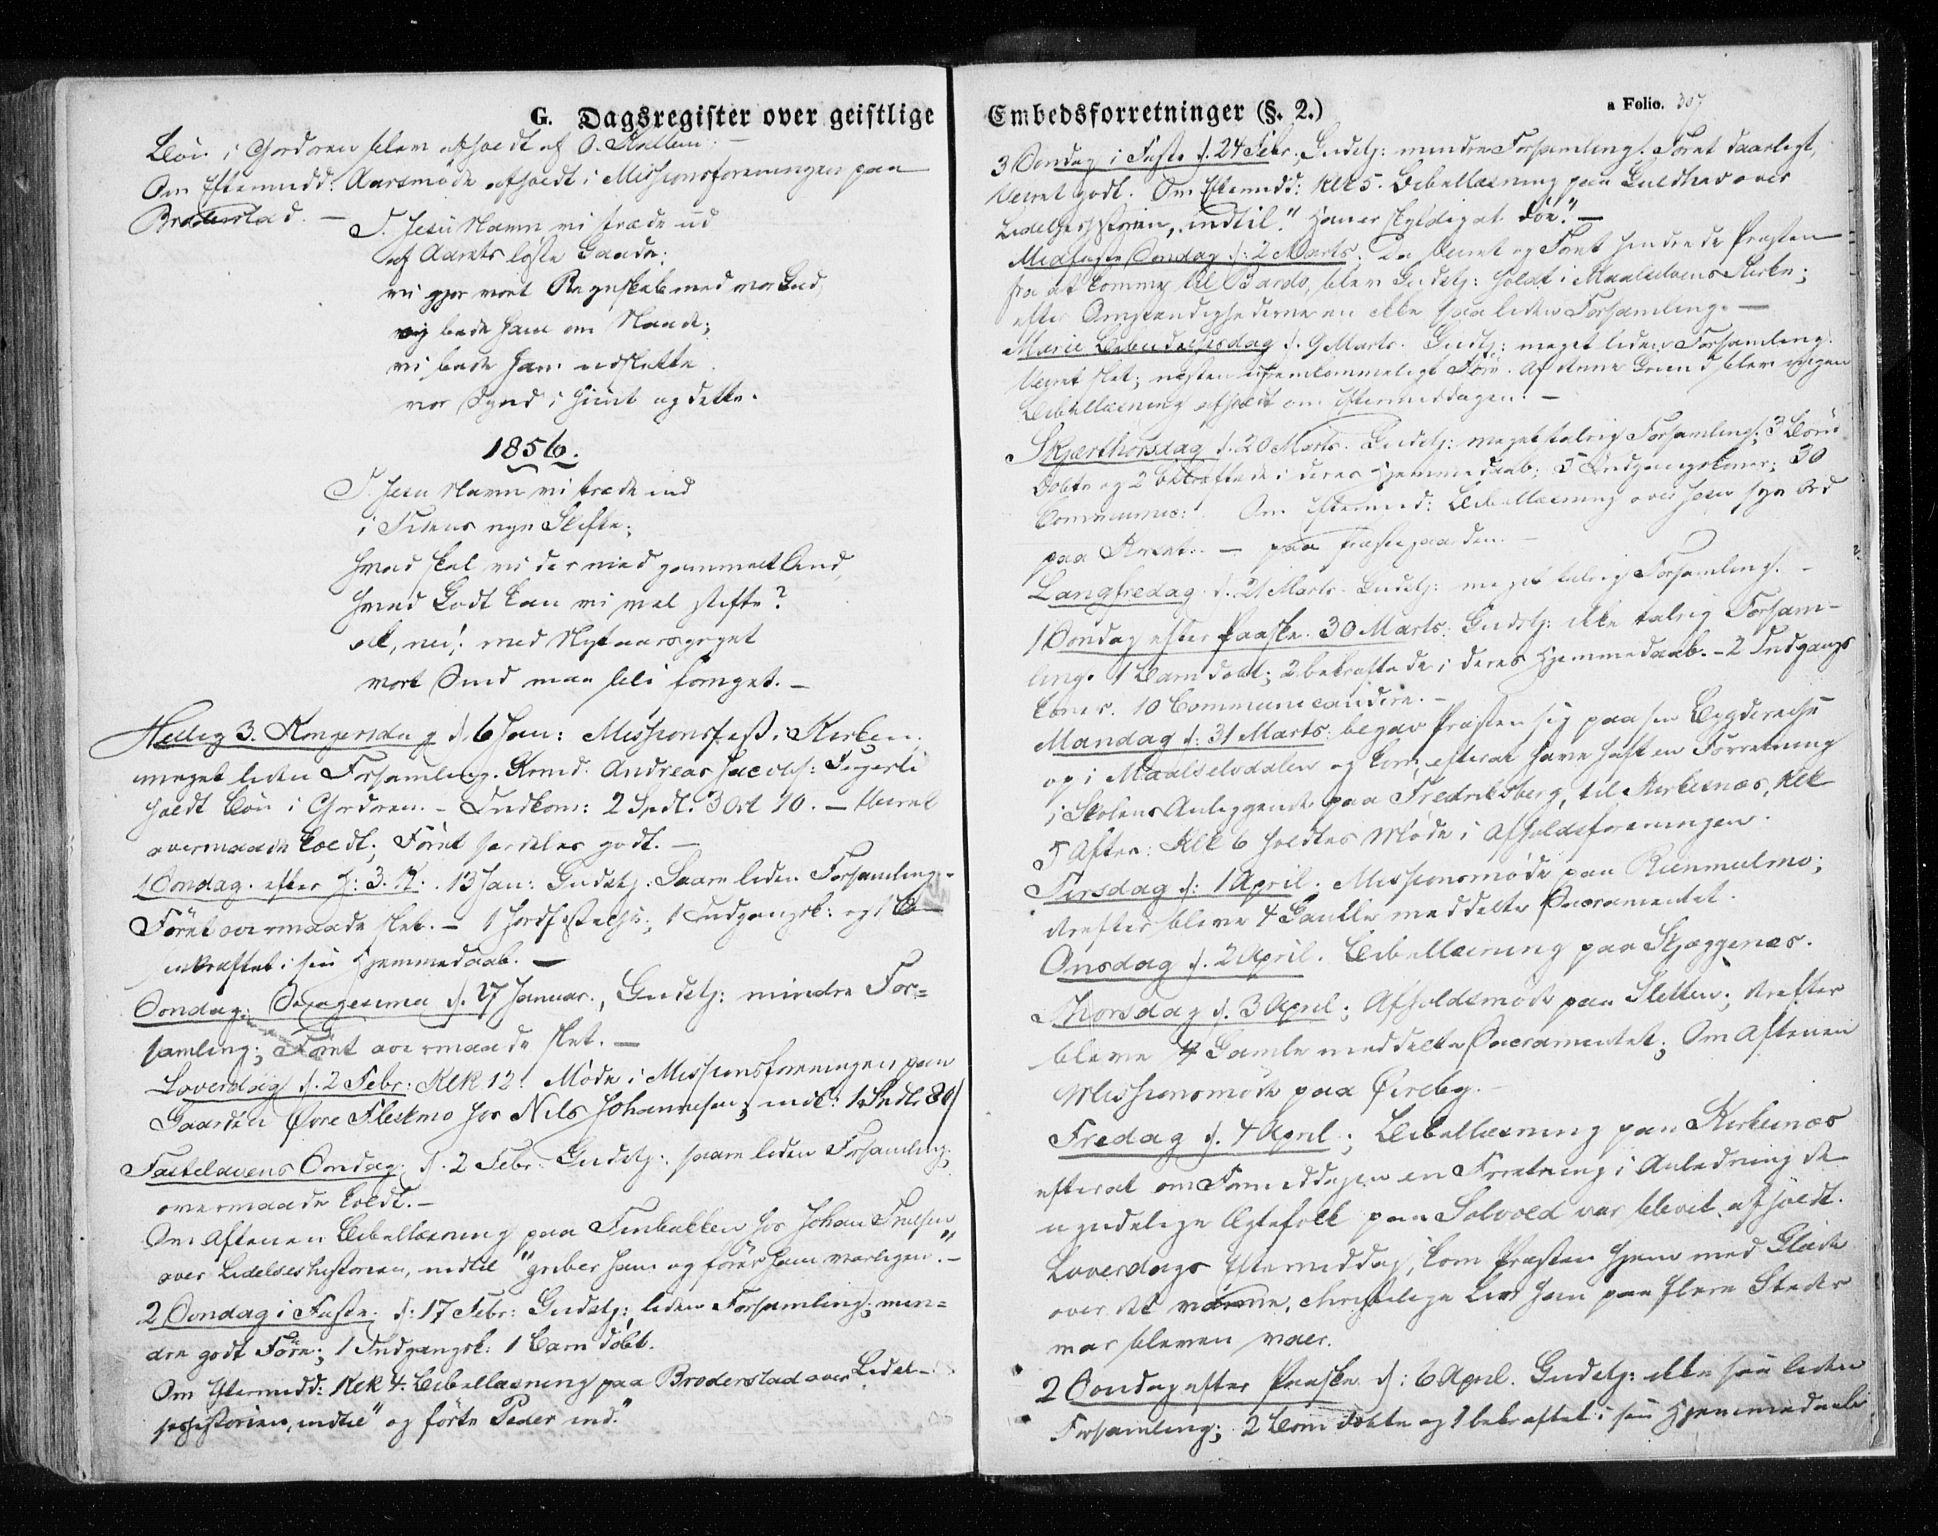 G. Dagsregister over geistlige
Bön i Chordören blev afholdt af O. Kollem. —
Om Eftermidd: Aarsmöde afholdt i Missionsforeningen paa
Broderstad. —
I Jesu Navn vi træde ud
af Aarets löste Baand;
vi gjør vort Regnskab med vor Gud,
vi bede ham om Naade;
vi bede ham udslette
vor Synd i hiint og dette.
1856.
I Jesu Navn vi træde ind
i Tidens nye Skifte;
hvad skal vi der med gammelt Sind,
hvad Godt kan vi vel stifte?
ak, nei! med Nytaarsgryet
vort Sind maa bli fornyet. —
Hellig 3. Kongersdag d. 6 Jan: Missionsfest i Kirken;
meget liden Forsamling. Kmd. Andreas Jacobs: Fagerli
holdt Bön i Chordören. — Indkom: 2 Spdl. 3 Ort 10. — Veiret
overmaade koldt; Föret særdeles godt. —
1 Söndag efter H: 3. K: 13 Jan: Gudstj. Saare liden Forsamling.
Föret overmaade slet. — 1 Jordfæstelse; 1 Indgangsk: og 1 B
bekræftet i sin Hjemmedaab. —
Söndag Sexagesima d. 27 Januar., Gudstj: mindre For=
samling; Föret overmaade slet. —
Löverdag d. 2 Febr: Klk 12: Möde i Missionsforeningen paa
Gaarden Øvre Fleskmo hos Nils Johannesen; indk: 1 Spdlr 80
Fastelavens Söndag d. 2 Febr: Gudstj: saare liden Forsamling;
overmaade koldt. —
Om Aftenen Bibellæsning paa Finbakken hos Johan
over Lidelseshistorien, indtil "griber ham og förer ham varligen". —
2 Söndag i Faste. d: 17 Febr: Gudstj: liden Forsamling; min=
dre godt Före; 1 Indgangsk: 1 Barn döbt.
Om Eftermidd: Klk 4. Bibellæsning paa Broderstad over Lidel-
seshistorien, indtil "og förte Peder ind."
Embedsforretninger (§. 2.)
a Folio. 307
3 Söndag i Faste d. 24 Febr. Gudstj: mindre Forsamling. Föret daarligt,
Veiret godt. Om Eftermidd: Klk 5. Bibellæsning paa Guldhav over
Lidelseshistorien, indtil "Han er skyldig at döe." —
Midfaste Söndag d: 2 Marts. Da Veiret og Föret hindrede Præsten
fra at komme til Bardo, blev Gudstj: holdt i Maalselvens Kirke;
efter Omstændighederne en ikke saa liden Forsamling. —
Mariæ Bebudelsesdag d. 9 Marts. Gudstj: meget liden Forsamling.
Veiret slet; næsten ufremkommeligt Före. Af denne Grund blev ingen
Bibellæsning afholdt om Eftermiddagen. —
Skjærthorsdag d. 20 Marts. Gudstj: meget talrig Forsamling; 3 Börn
döbte og 2 bekræftede i deres Hjemmedaab; 5 Indgangskoner; 30
Communic: Om Eftermid: Bibellæsning over Jesu syv Ord
paa Korset. — paa Præstegaarden. —
Langfredag d. 21 Marts Gudstj: meget talrig Forsamling. —
1 Söndag efter Paaske. 30 Marts: Gudstj: ikke talrig Forsam-
ling. 1 Barn döbt; 2 bekræftede i deres Hjemmedaab. — 2 Indgangs
koner. 10 Communicantere. —
Mandag d: 31 Marts: begav Præsten sig paa sin Bygdereise
op i Maalselvdalen og kom, efter at have havt en Forretning
i Skolens Anliggende paa Fredriksberg, til Kirkesnæs, Klk
5 Aften: Klk 6 holdtes Möde i Afholdsforeningen.
Tirsdag d: 1 April. Missionsmöde paa Rienmulmo;
derefter bleve 4 Gamle meddelte Sacramentet.
Onsdag d. 2 April. Bibellæsning paa Skjæggenæs.
Thorsdag d. 3 April; Afholdsmöde paa Sletten; derefter
bleve 4 Gamle meddelte Sacramentet; Om Aftenen
Missionsmöde paa Øvreby. —
Fredag d. 4 April; Bibellæsning paa Kirkesnæs
efterat om Formiddagen en Forretning i Anledning de
ugudelige Ægtefolk paa Solvold var blevet afholdt.
Löverdags Eftermiddag, kom Præsten hjem med Glæde
over det varme, christelige Liv han paa flere Steder
var bleven vaer.
2 Söndag efter Paaske d: 6 April. Gudstj: ikke saa liden
Forsamling; 2 Börn döbte og 1 bekræftet i sin Hjemmedaab